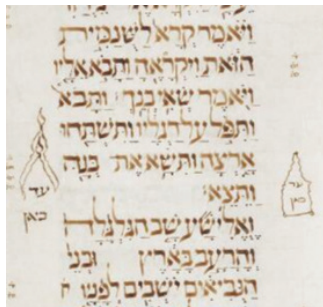 ויאמר קרא לשנמית
הזאת ויקראה ותבא אליו
ויאמר שאי בנך ותבא
ותפל על רגליו ותשתחו
ארצה ותשא את בנה
ותצא
ואלישע שב הגלגלה
והרעב בארץ ובני
הנביאים ישבים
עד
כאן
עד
כאן